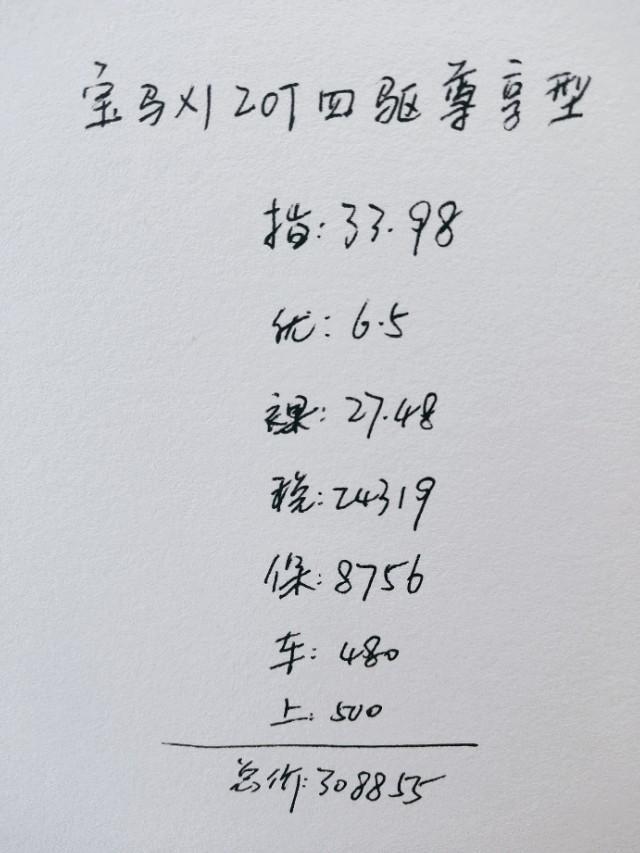 宝马X1 20T四驱尊享型
指:33.98
优:6.5
裸:27.48
税:24319
保:8756
车:480
上:500
总价:308855